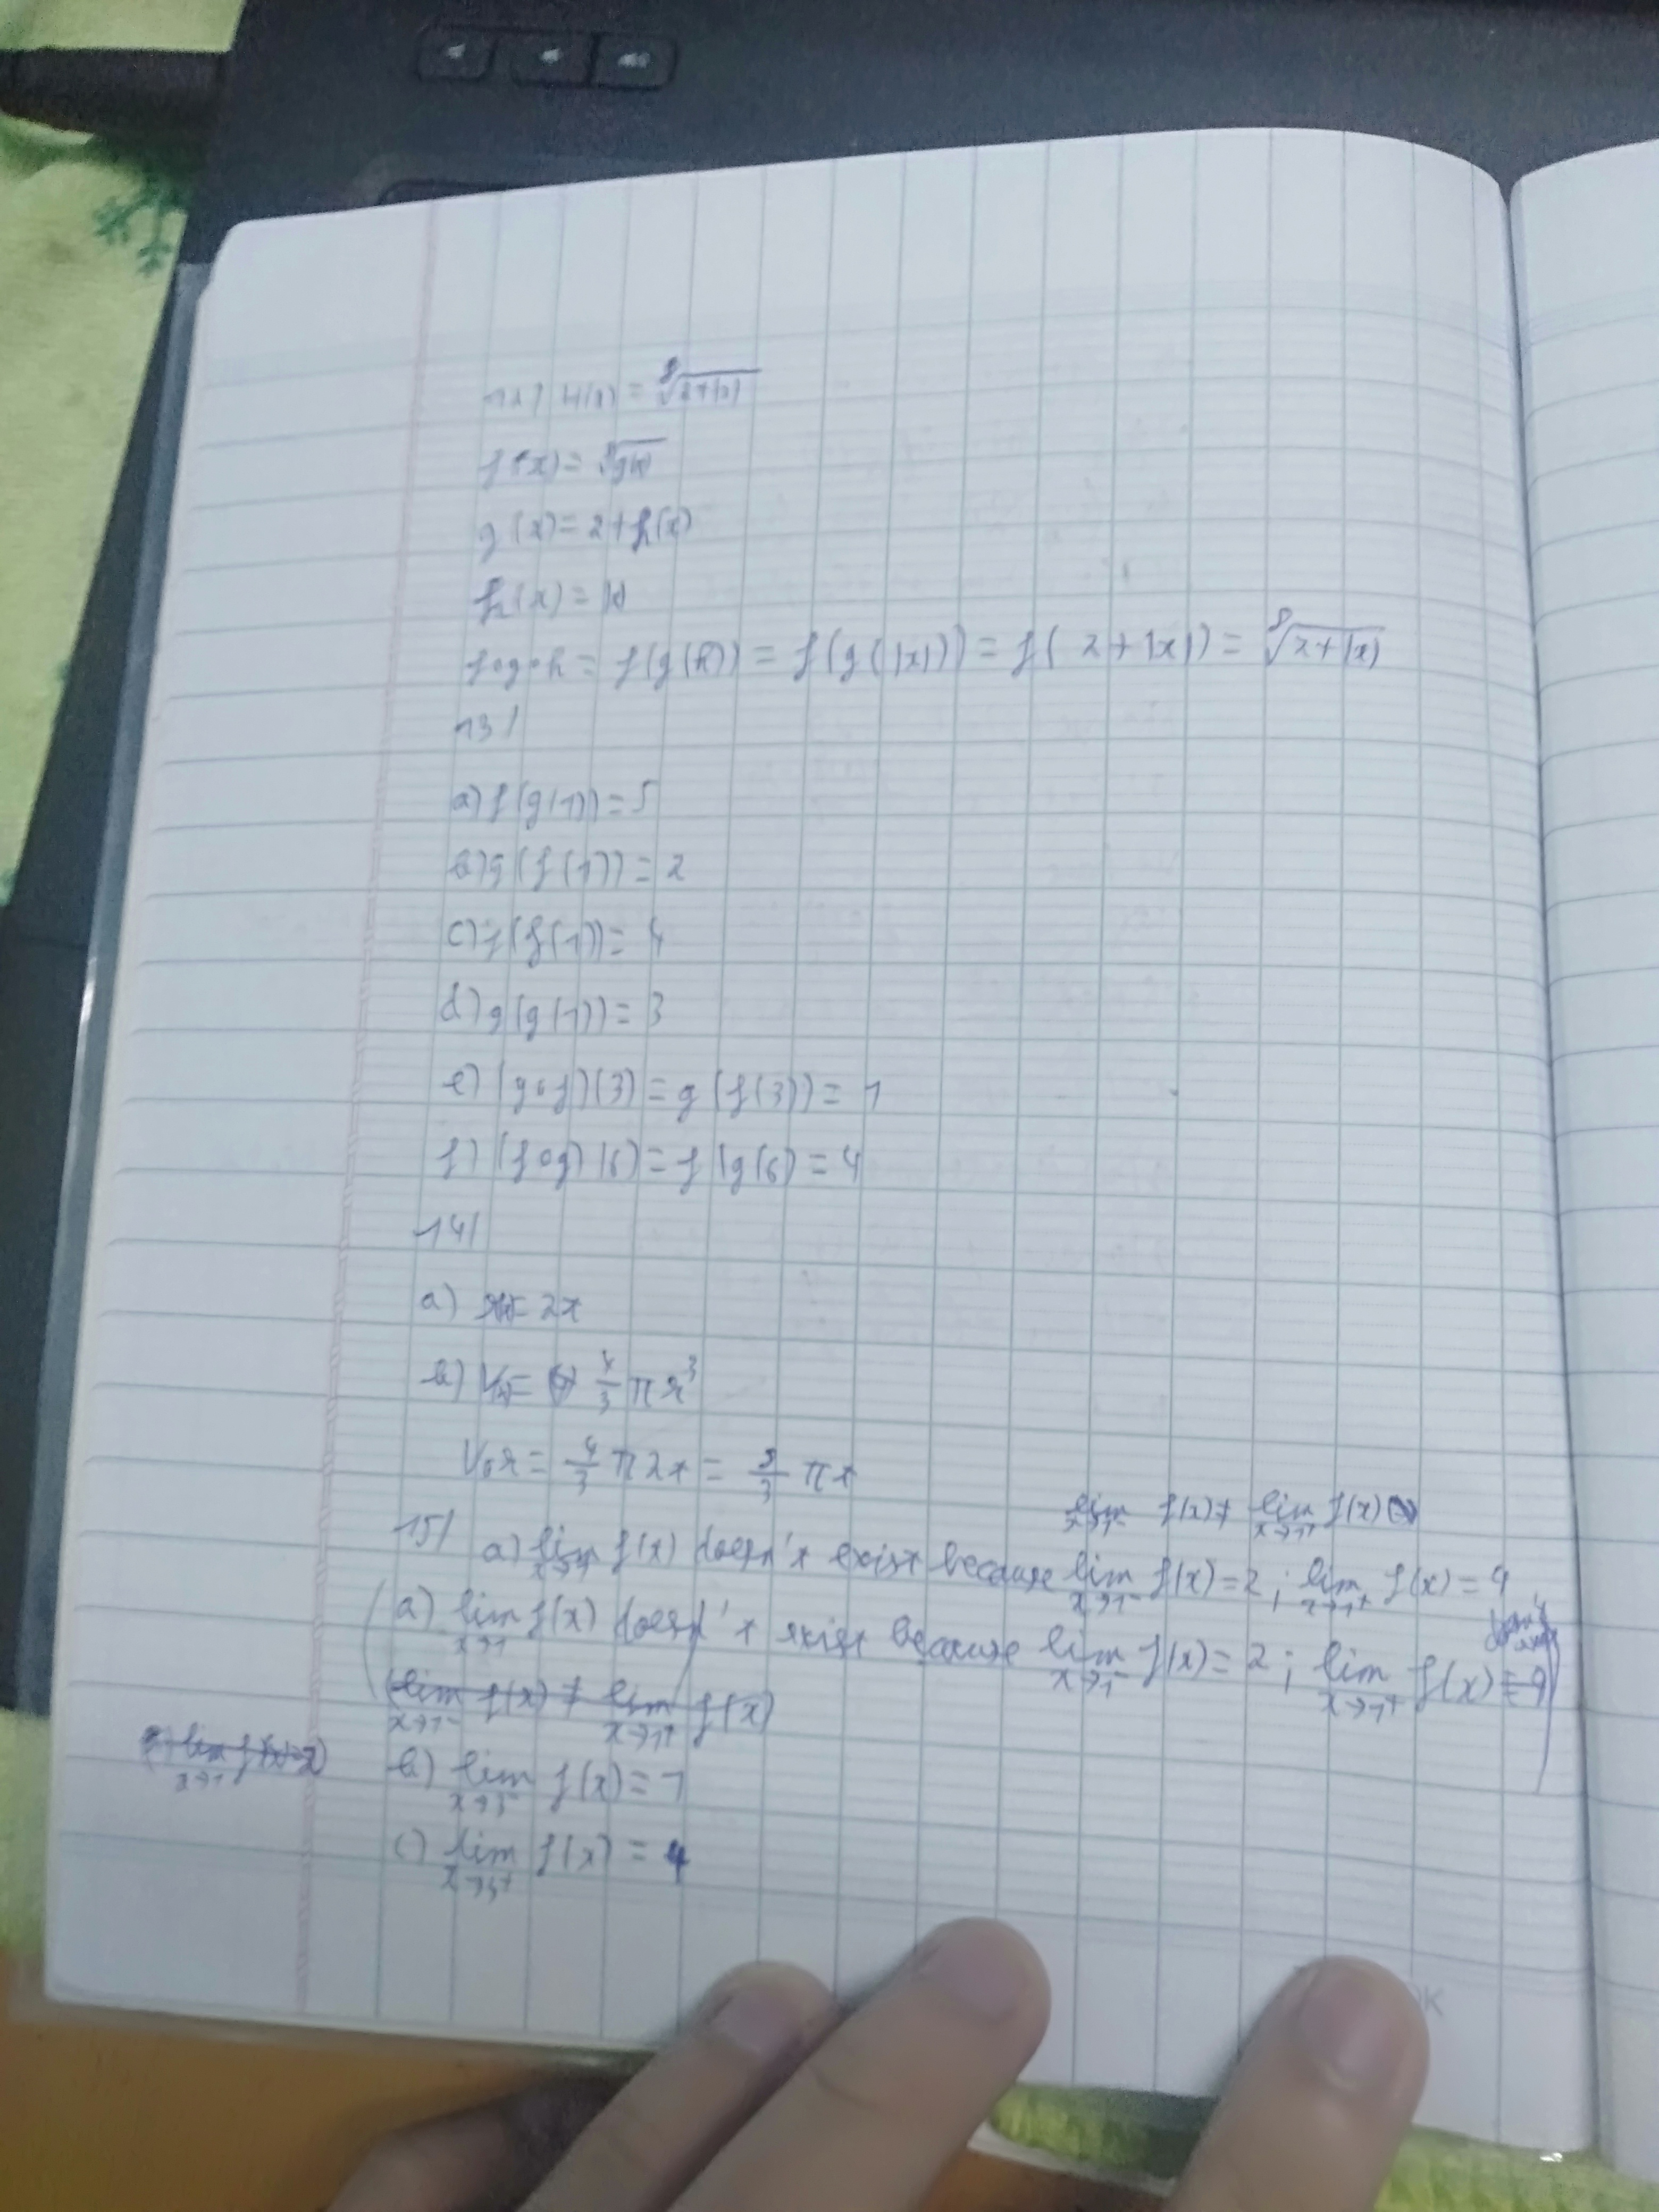 12/ H(x) = ⁸√(2+|x|)
f(x) = ⁸√g(x)
g(x) = 2 + h(x)
h(x) = |x|
fogoh = f(g(h)) = f(g(|x|)) = f(2+|x|) = ⁸√(2+|x|)
13/
a) f(g(1)) = 5
b) g(f(1)) = 2
c) f(f(1)) = 4
d) g(g(1)) = 3
e) (gof)(3) = g(f(3)) = 1
f) (fog)(6) = f(g(6) = 4
14/
a) = 2t
b) = 4/3 πr³
Vor = 4/3 π2t = 8/3 πt
lim x→1⁻ f(x) ≠ lim x→1⁺ f(x)
15/ a) lim x→1 f(x) doesn't exist because lim x→1⁻ f(x) = 2 ; lim x→1⁺ f(x) = 4
(a) lim x→1 f(x) doesn't exist because lim x→1⁻ f(x) = 2 ; lim x→1⁺ f(x)
lim x→1⁻ f(x) ≠ lim x→1⁺ f(x)
b) lim x→5⁻ f(x) = 1
c) lim x→5⁺ f(x) = 4